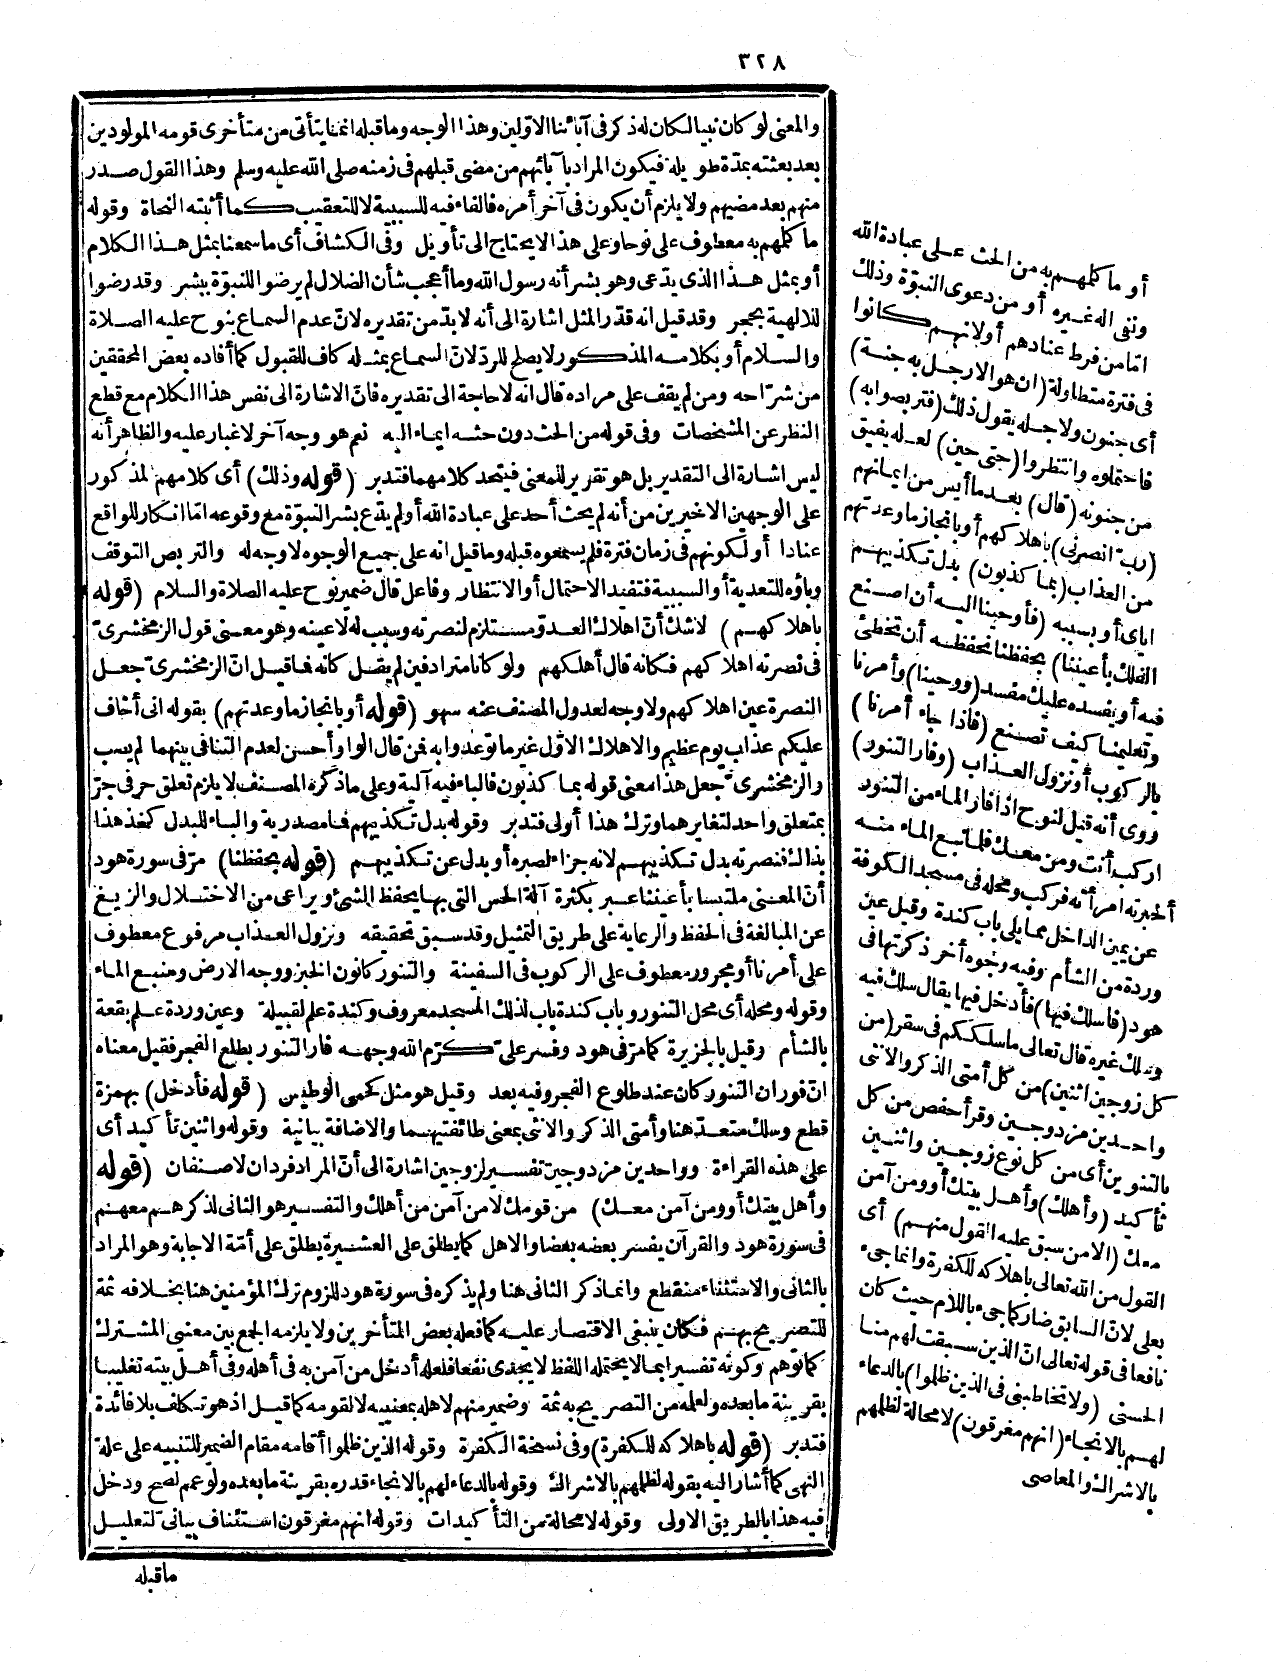 ٣٢٨
والمعنى لو كان نبيا لكان له ذكر فى آبائنا الاولين وهذا الوجه وما قبله انما يتأتى من متأخرى قومه المولودين
بعد بعثته بمدّة طويله فيكون المراد بآبائهم من مضى قبلهم فى زمنه صلى الله عليه وسلم وهذا القول صدر
منهم بعد مضيهم ولا يلزم أن يكون فى آخر أمره فالفاء فيه للسببية لا للتعقيب كما أثبته النحاة وقوله
ما كلمهم به معطوف على نوحا وعلى هذا لا يحتاج الى تأويل وفى الكشاف أى ما سمعنا بمثل هذا الكلام
أو بمثل هذا الذى يدّعى وهو بشر أنه رسول الله وما أعجب شأن الضلال لم يرضوا للنبوّة ببشر وقد رضوا
للالهية بحجر وقد قيل انه قدّر المثل اشارة الى أنه لا بدّ من تقديره لانّ عدم السماع بنوح عليه الصلاة
والسلام أو بكلامه المذكور لا يصلح للردّ لانّ السماع بمثله كاف للقبول كما أفاده بعض المحققين
من شرّاحه ومن لم يقف على مراده قال انه لا حاجة الى تقديره فانّ الاشارة الى نفس هذا الكلام مع قطع
النظر عن المشخصات وفى قوله من الحث دون حثه ايماء اليه نعم هو وجه آخر لا غبار عليه والظاهر أنه
ليس اشارة الى التقدير بل هو تقرير للمعنى فيتحد كلامهما فتدبر (قوله وذلك) أى كلامهم المذكور
على الوجهين الاخيرين من أنه لم يحث أحد على عبادة الله أو لم يدّع بشر النبوّة مع وقوعه امّا انكار للواقع
عنادا أو لكونهم فى زمان فترة فلم يسمعوه قبله وما قيل انه على جميع الوجوه لا وجه له والتربص التوقف
وباؤه للتعدية أو السببية فتفيد الاحتمال أو الانتظار وفاعل قال ضمير نوح عليه الصلاة والسلام (قوله
باهلاكهم) لا شك أنّ اهلاك العدوّ مستلزم لنصرته وسبب له لا عينه وهو معنى قول الزمخشرىّ
فى نصرته اهلاكهم فكانه قال أهلكهم ولو كانا مترادفين لم يقل كانه فما قيل انّ الزمخشرىّ جعل
النصرة عين اهلاكهم ولا وجه لعدول المصنف عنه سهو (قوله أو بانجاز ما وعدتهم) بقوله انى أخاف
عليكم عذاب يوم عظيم والاهلاك الاوّل غير ما توعدوا به فمن قال الواو أحسن لعدم التنافى بينهما لم يصب
والزمخشرىّ جعل هذا معنى قوله بما كذبون فالباء فيه آلية وعلى ما ذكره المصنف لا يلزم تعلق حرفى جرّ
بمتعلق واحد لتغايرهما وترك هذا أولى فتدبر وقوله بدل تكذيبهم فما مصدرية والباء للبدل كبعت هذا
بذاك فنصرته بدل تكذيبهم لانه جزاء لصبره أو بدل عن تكذيبهم (قوله بحفظنا) مرّ فى سورة هود
أنّ المعنى ملتبسا بأعيننا عبر بكثرة آلة الحس التى بها يحفظ الشئ ويراعى من الاختلال والزيغ
عن المبالغة فى الحفظ والرعاية على طريق التمثيل وقد سبق تحقيقه ونزول العذاب مرفوع معطوف
على أمرنا أو مجرور معطوف على الركوب فى السفينة والتنور كانون الخبز ووجه الارض ومنبع الماء
وقوله ومحله أى محل التنور وباب كندة باب لذلك المسجد معروف وكندة علم لقبيلة وعين وردة علم بقعة
بالشأم وقيل بالجزيرة كما مرّ فى هود وفسر علىّ كرّم الله وجهه فار التنور بطلع الفجر فقيل معناه
انّ فوران التنور كان عند طلوع الفجر وفيه بعد وقيل هو مثل كحمى الوطيس (قوله فأدخل) بهمزة
قطع وسلك متعدّ هنا وأمتى الذكر والانثى بمعنى طائفتيهما والاضافة بيانية وقوله واثنين تأكيد أى
على هذه القراءة وواحدين مزدوجين تفسير لزوجين اشارة الى أنّ المراد فردان لا صنفان (قوله
وأهل بيتك أو ومن آمن معك) من قومك لا من آمن من أهلك والتفسير هو الثانى لذكرهم معهم
فى سورة هود والقرآن يفسر بعضه بعضا والاهل كما يطلق على العشيرة يطلق على أمّة الاجابة وهو المراد
بالثانى والاستثناء منقطع وانما ذكر الثانى هنا ولم يذكره فى سورة هود للزوم ترك المؤمنين هنا بخلافه ثمة
للتصريح بهم فكان ينبغى الاقتصار عليه كما فعله بعض المتأخرين ولا يلزمه الجمع بين معنيى المشترك
كما توهم وكونه تفسيرا بما لا يحتمله اللفظ لا يجدى نفعا فلعله أدخل من آمن به فى أهله وفى أهل بيته تغليبا
بقرينة ما بعده ولعلمه من التصريح به ثمة وضمير منهم لاهله بمعنييه لا لقومه كما قيل اذ هو تكلف بلا فائدة
فتدبر (قوله باهلاكه للكفرة) وفى نسخة الكفرة وقوله الذين ظلموا أقامه مقام الضمير للتنبيه على علة
النهى كما أشار اليه بقوله لظلمهم بالاشراك وقوله بالدعاء لهم بالانجاء قدره بقرينة ما بعده ولو عمم لصح ودخل
فيه هذا بالطريق الاولى وقوله لا محالة من التأكيدات وقوله انهم مغرقون استئناف بيانى لتعليل
ما قبله
أو ما كلمهم به من الحث على عبادة الله
ونفى اله غيره أو من دعوى النبوّة وذلك
امّا من فرط عنادهم أو لانهم كانوا
فى فترة متطاولة (ان هو الا رجل به جنة)
أى جنون ولاجله يقول ذلك (فتربصوا به)
فاحتملوه وانتظروا (حتى حين) لعله يفيق
من جنونه (قال) بعد ما أيس من ايمانهم
(رب انصرنى) باهلاكهم أو بانجاز ما وعدتهم
من العذاب (بما كذبون) بدل تكذيبهم
اياى أو بسببه (فأوحينا اليه أن اصنع
الفلك بأعيننا) بحفظنا نحفظه أن تخطئ
فيه أو يفسده عليك مفسد (ووحينا) وأمرنا
وتعليمنا كيف تصنع (فاذا جاء أمرنا)
بالركوب أو نزول العذاب (وفار التنور)
روى أنه قيل لنوح اذا فار الماء من التنور
اركب أنت ومن معك فلما نبع الماء منه
أخبرته امرأته فركب ومحله فى مسجد الكوفة
عن يمين الداخل مما يلى باب كندة وقيل عين
وردة من الشأم وفيه وجوه أخر ذكرتها فى
هود (فاسلك فيها) فأدخل فيها يقال سلك فيه
وسلك غيره قال تعالى ما سلككم فى سقر (من
كل زوجين اثنين) من كل أمتى الذكر والانثى
واحدين مزدوجين وقرأ حفص من كل
بالتنوين أى من كل نوع زوجين واثنين
تأكيد (وأهلك) وأهل بيتك أو ومن آمن
معك (الا من سبق عليه القول منهم) أى
القول من الله تعالى باهلاكه للكفرة وانما جىء
بعلى لانّ السابق ضار كما جىء باللام حيث كان
نافعا فى قوله تعالى انّ الذين سبقت لهم منا
الحسنى (ولا تخاطبنى فى الذين ظلموا) بالدعاء
لهم بالانجاء (انهم مغرقون) لا محالة لظلمهم
بالاشراك والمعاصى